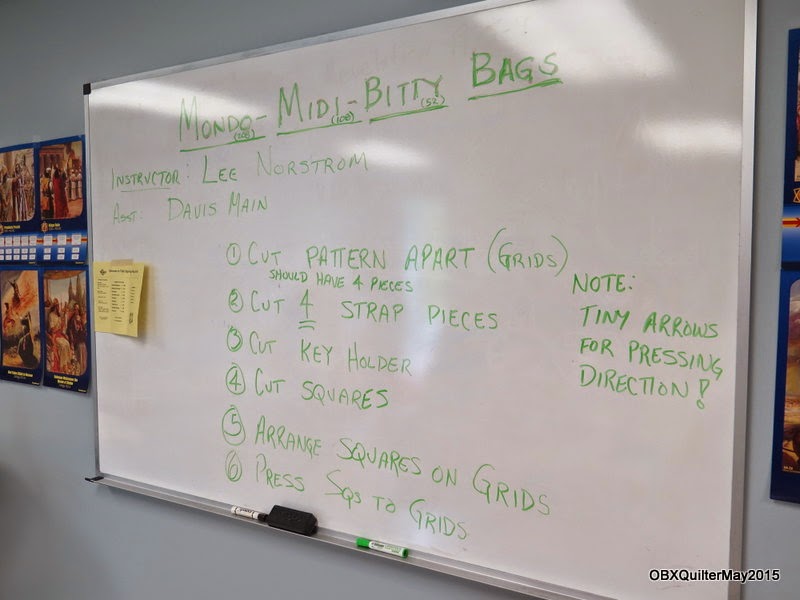 MONDO-MIDI-BITTY BAGS
(208) (108) (52)
INSTRUCTOR: LEE NORSTROM
ASST: DAVIS MAIN
① CUT PATTERN APART (GRIDS)
SHOULD HAVE 4 PIECES
② CUT 4 STRAP PIECES
③ CUT KEY HOLDER
④ CUT SQUARES
⑤ ARRANGE SQUARES ON GRIDS
⑥ PRESS SQS TO GRIDS
NOTE:
TINY ARROWS
FOR PRESSING
DIRECTION!
OBXQuilterMay2015